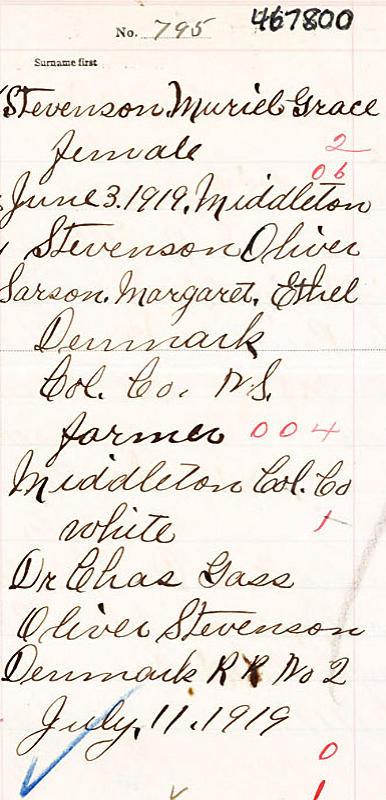 No. 795 467800
Surname first
Stevenson, Muriel Grace
female 2
06
June 3. 1919, Middleton
Stevenson Oliver
Sarson. Margaret. Ethel
Denmark
Col. Co. N.S.
farmer 004
Middleton Col. Co
white 1
Dr Chas Gass
Oliver Stevenson
Denmark R R No 2
July, 11. 1919
0
1